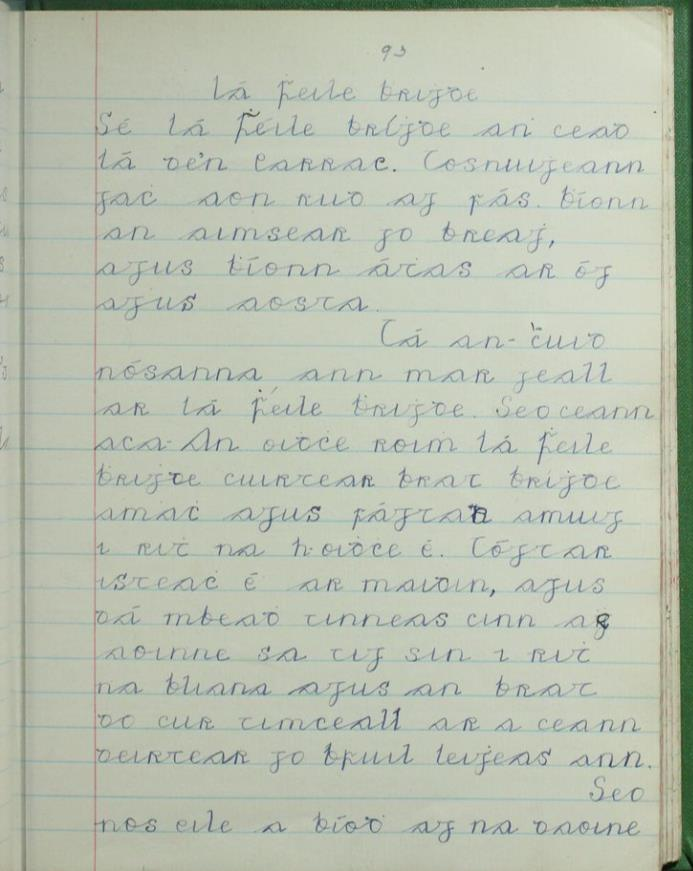 93
Lá Ḟeile Briġde
Sé lá Ḟéile Bríġde an cead
lá de'n Earrac. Tosnuiġeann
gaċ aon rud ag fás. Bíonn
an aimsear go breaġ,
agus bíonn áṫas ar óg
agus aosta.
Tá an-ċuid
nósanna ann mar ġeall
ar lá Ḟéile Briġde. Seo ceann
aca. An oiḋċe roiṁ lá Ḟeile
Briġde cuirtear brat Briġde
amaċ agus fágtar amuiġ
i riṫ na h-oiḋċe é. Tógtar
isteaċ é ar maidin, agus
dá mbeaḋ tinneas cinn ag
aoinne sa tiġ sin i riṫ
na bliana agus an brat
do cur timceall ar a ceann
deirtear go bfuil leiġeas ann.
Seo
nos eile a ḃíoḋ ag na daoine